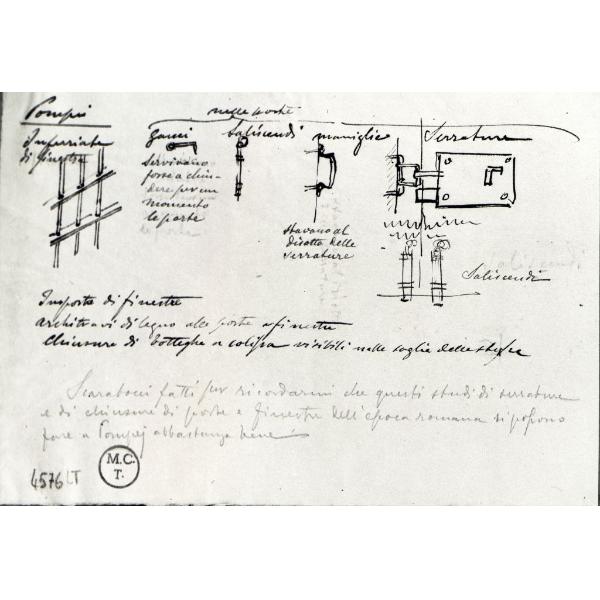 Pompei
nelle porte
Inferriate
di finestre
ganci
Saliscendi
maniglie
Serrature
servivano
forse a chiu-
dere per un
momento
le porte
stavano al
disotto delle
serrature
Saliscendi
Imposte di finestre
architravi di legno alle porte e finestre
Chiusure di botteghe a colissa visibili nelle soglie delle stesse
Scarabocci fatti per ricordarmi che questi studi di serrature
e di chiusure di porte e finestre dell'epoca romana si possono
fare a Pompej abbastanza bene
4576 LT
M.C.
T.